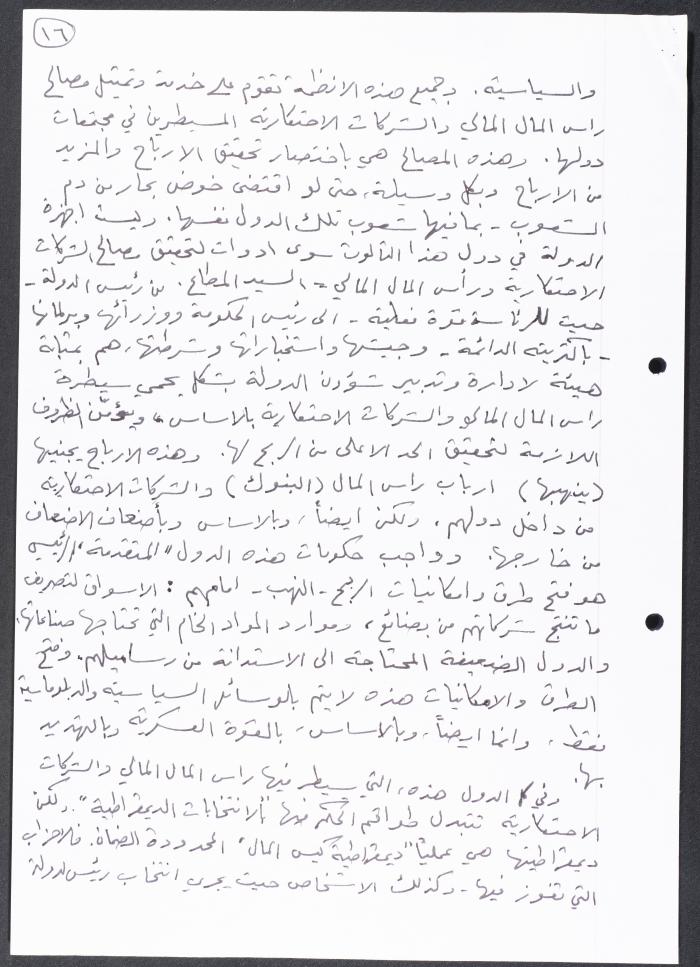 ١٦
والسياسية. وجميع هذه الانظمة تقوم على خدمة وتمثيل مصالح
راس المال المالي والشركات الاحتكارية المسيطرين في مجتمعات
دولها. وهذه المصالح هي باختصار تحقيق الارباح والمزيد
من الارباح وبكل وسيلة، حتى لو اقتضى خوض بحار من دم
الشعوب - بما فيها شعوب تلك الدول نفسها. وليست اجهزة
الدولة في دول هذا الثالوث سوى ادوات لتحقيق مصالح الشركات
الاحتكارية ورأس المال المالي - السيد المطاع. من رئيس الدولة -
حيث للرئاسة قوة فعلية - الى رئيس الحكومة ووزرائها وبرلمانها
- باكثريته الدائمة - وجيشها واستخباراتها وشرطتها، هم بمثابة
هيئة لادارة وتدبير شؤون الدولة بشكل يحمي سيطرة
راس المال المالي والشركات الاحتكارية بالاساس، ويؤمّن الظروف
اللازمة لتحقيق الحد الاعلى من الربح لها. وهذه الارباح يجنيها
(ينهبها) ارباب راس المال (البنوك) والشركات الاحتكارية
من داخل دولهم، ولكن ايضاً، وبالاساس وبأضعاف الاضعاف
من خارجها. وواجب حكومات هذه الدول "المتقدمة" الرئيسي
هو فتح طرق وامكانيات الربح - النهب - امامهم: الاسواق لتصريف
ما تنتج شركاتهم من بضائع، وموارد المواد الخام التي تحتاجها صناعاتها،
والدول الضعيفة المحتاجة الى الاستدانة من رساميلهم. وفتح
الطرق والامكانيات هذه لا يتم بالوسائل السياسية والدبلوماسية
فقط، وانما ايضاً، وبالاساس، بالقوة العسكرية وبالتهديد
بها.
وفي الدول هذه، التي يسيطر فيها راس المال المالي والشركات
الاحتكارية تتبدل طواقم الحكم فيها "بالانتخابات الديمقراطية". ولكن
ديمقراطيتها هي عملياً "ديمقراطية كيس المال" المحدودة الضمانة. فالاحزاب
التي تفوز فيها - وكذلك الاشخاص حيث يجري انتخاب رئيس لدولة